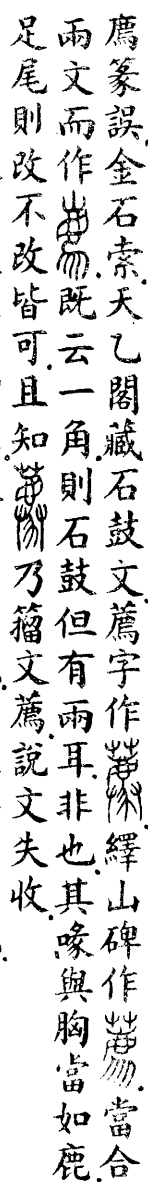 廌篆誤金石索天乙閣藏石鼓文薦字作繹山碑作當合
兩文而作既云一角則石鼓但有兩耳非也其喙與胸當如鹿
足尾則改不改皆可且知乃籀文薦說文失收